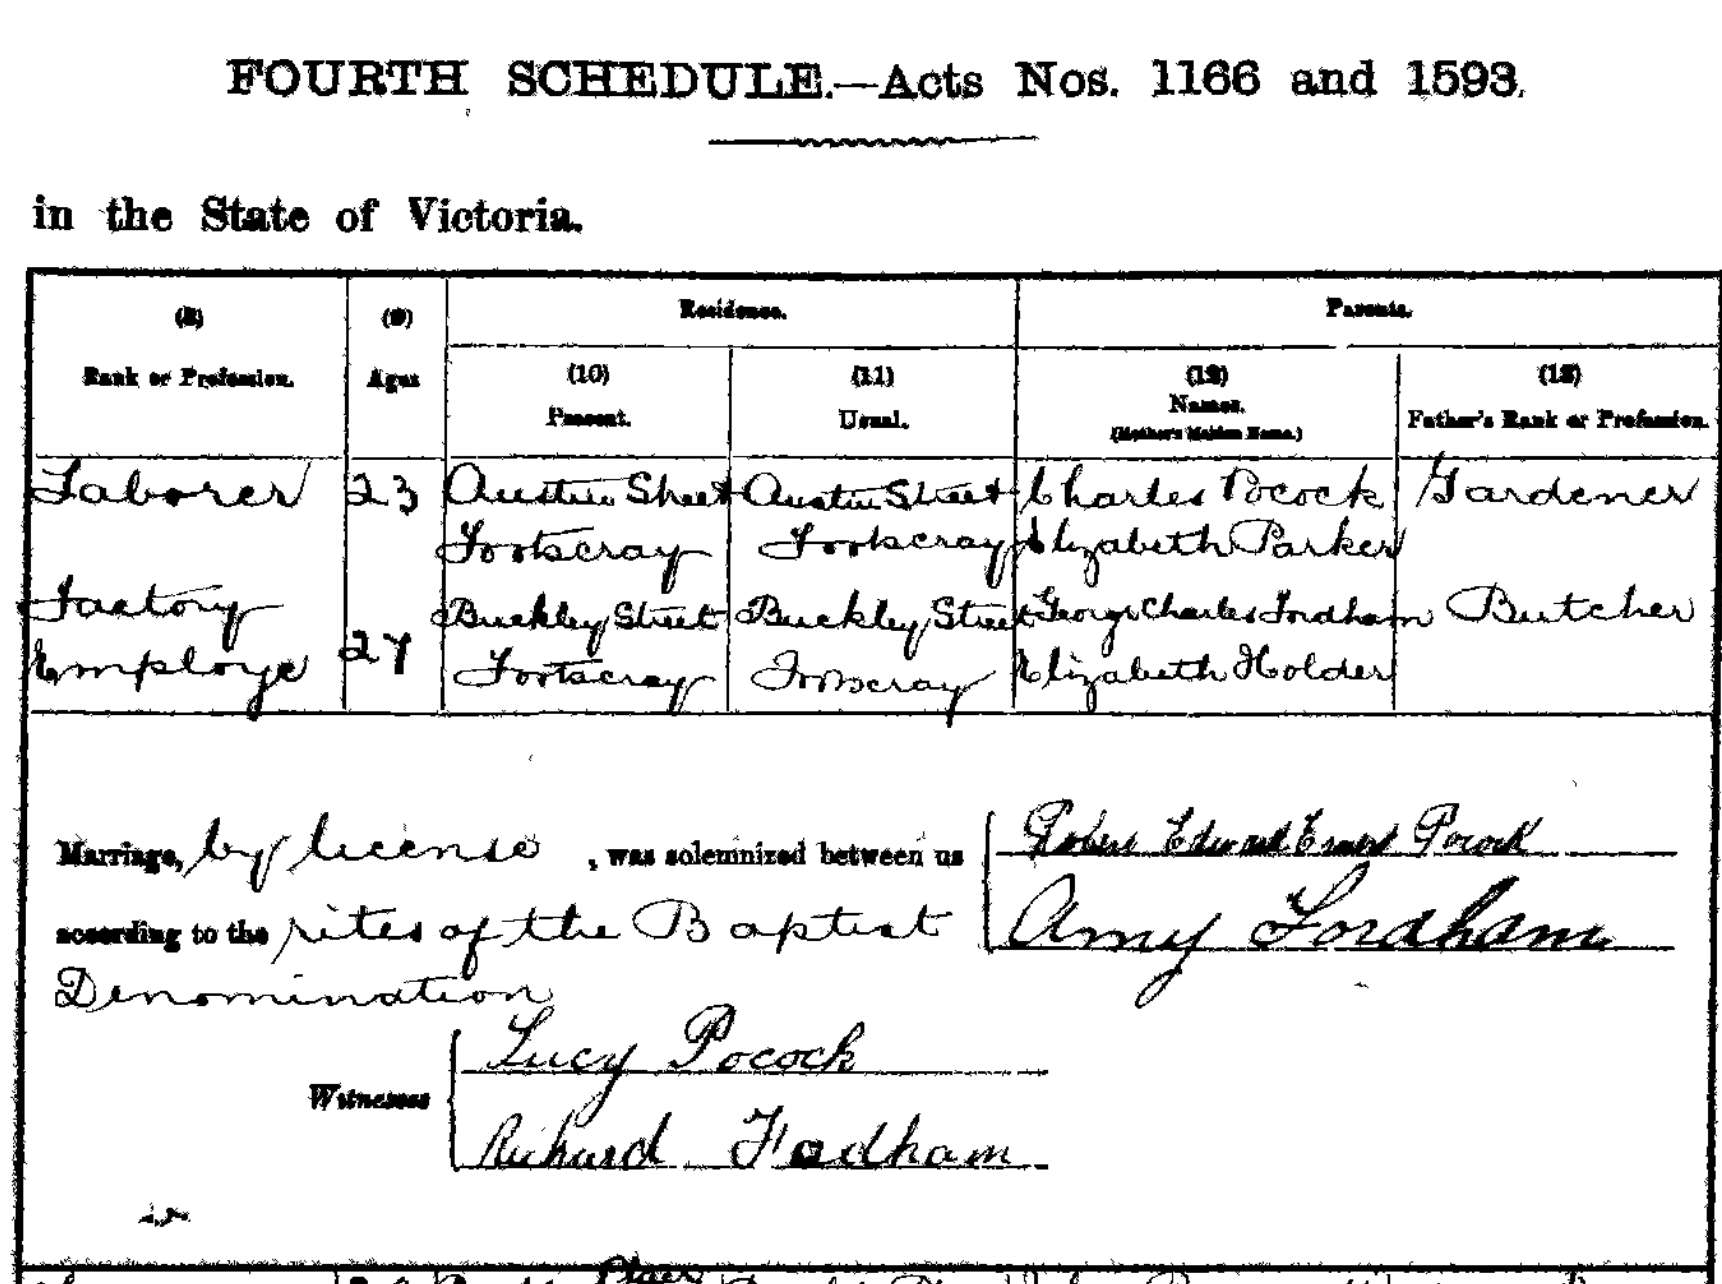 FOURTH SCHEDULE.—Acts Nos. 1166 and 1593.
in the State of Victoria.
(8) (9) Residence. Parents.
Rank or Profession. Ages (10) (11) (12) (13)
Present. Usual. Names. Father's Rank or Profession.
(Mother's Maiden Name.)
Laborer 23 Austin Street Austin Street Charles Pocock Gardener
Footscray Footscray Elizabeth Parker
Factory Buckley Street Buckley Street George Charles Fordham Butcher
Employe 27 Footscray Footscray Elizabeth Holder
Marriage, by license , was solemnized between us Robert Edward Ernest Pocock
according to the rites of the Baptist Amy Fordham
Denomination
Lucy Pocock
Witnesses
Richard Fodham